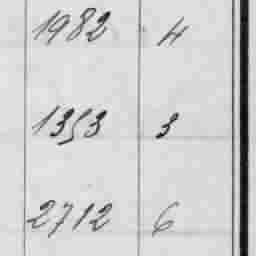 1982 4
1353 3
2712 6